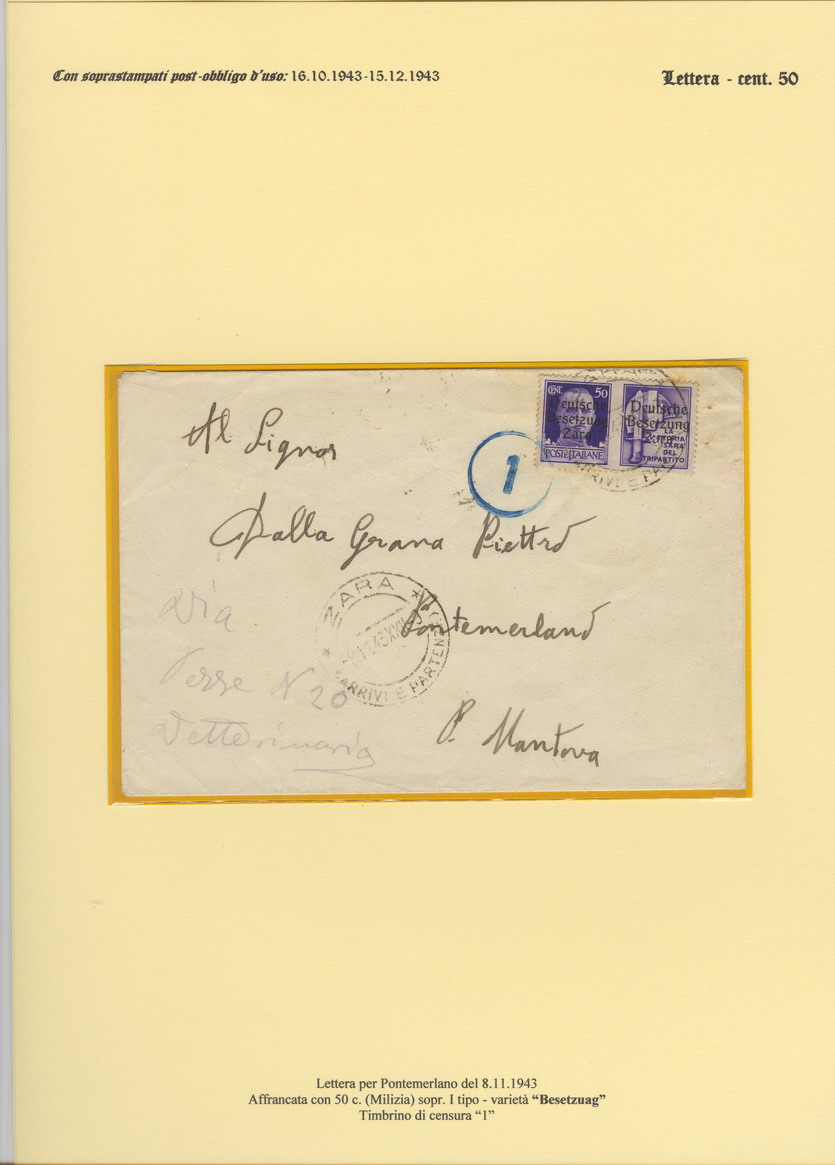 Con soprastampati post-obbligo d'uso: 16.10.1943-15.12.1943
Lettera - cent. 50
CENT. 50
Deutsche
Besetzuag
Zara
POSTE ITALIANE
Deutsche
Besetzung
Zara
LA
VITTORIA
SARÀ
DEL
TRIPARTITO
ARRIVI E PA
1
Al Signor
Dalla Grana Piettro
Pontemerlano
P. Mantova
ZARA
ARRIVI E PARTENZ
Via
N 20
Vetterinaria
Lettera per Pontemerlano del 8.11.1943
Affrancata con 50 c. (Milizia) sopr. I tipo - varietà “Besetzuag”
Timbrino di censura “1”